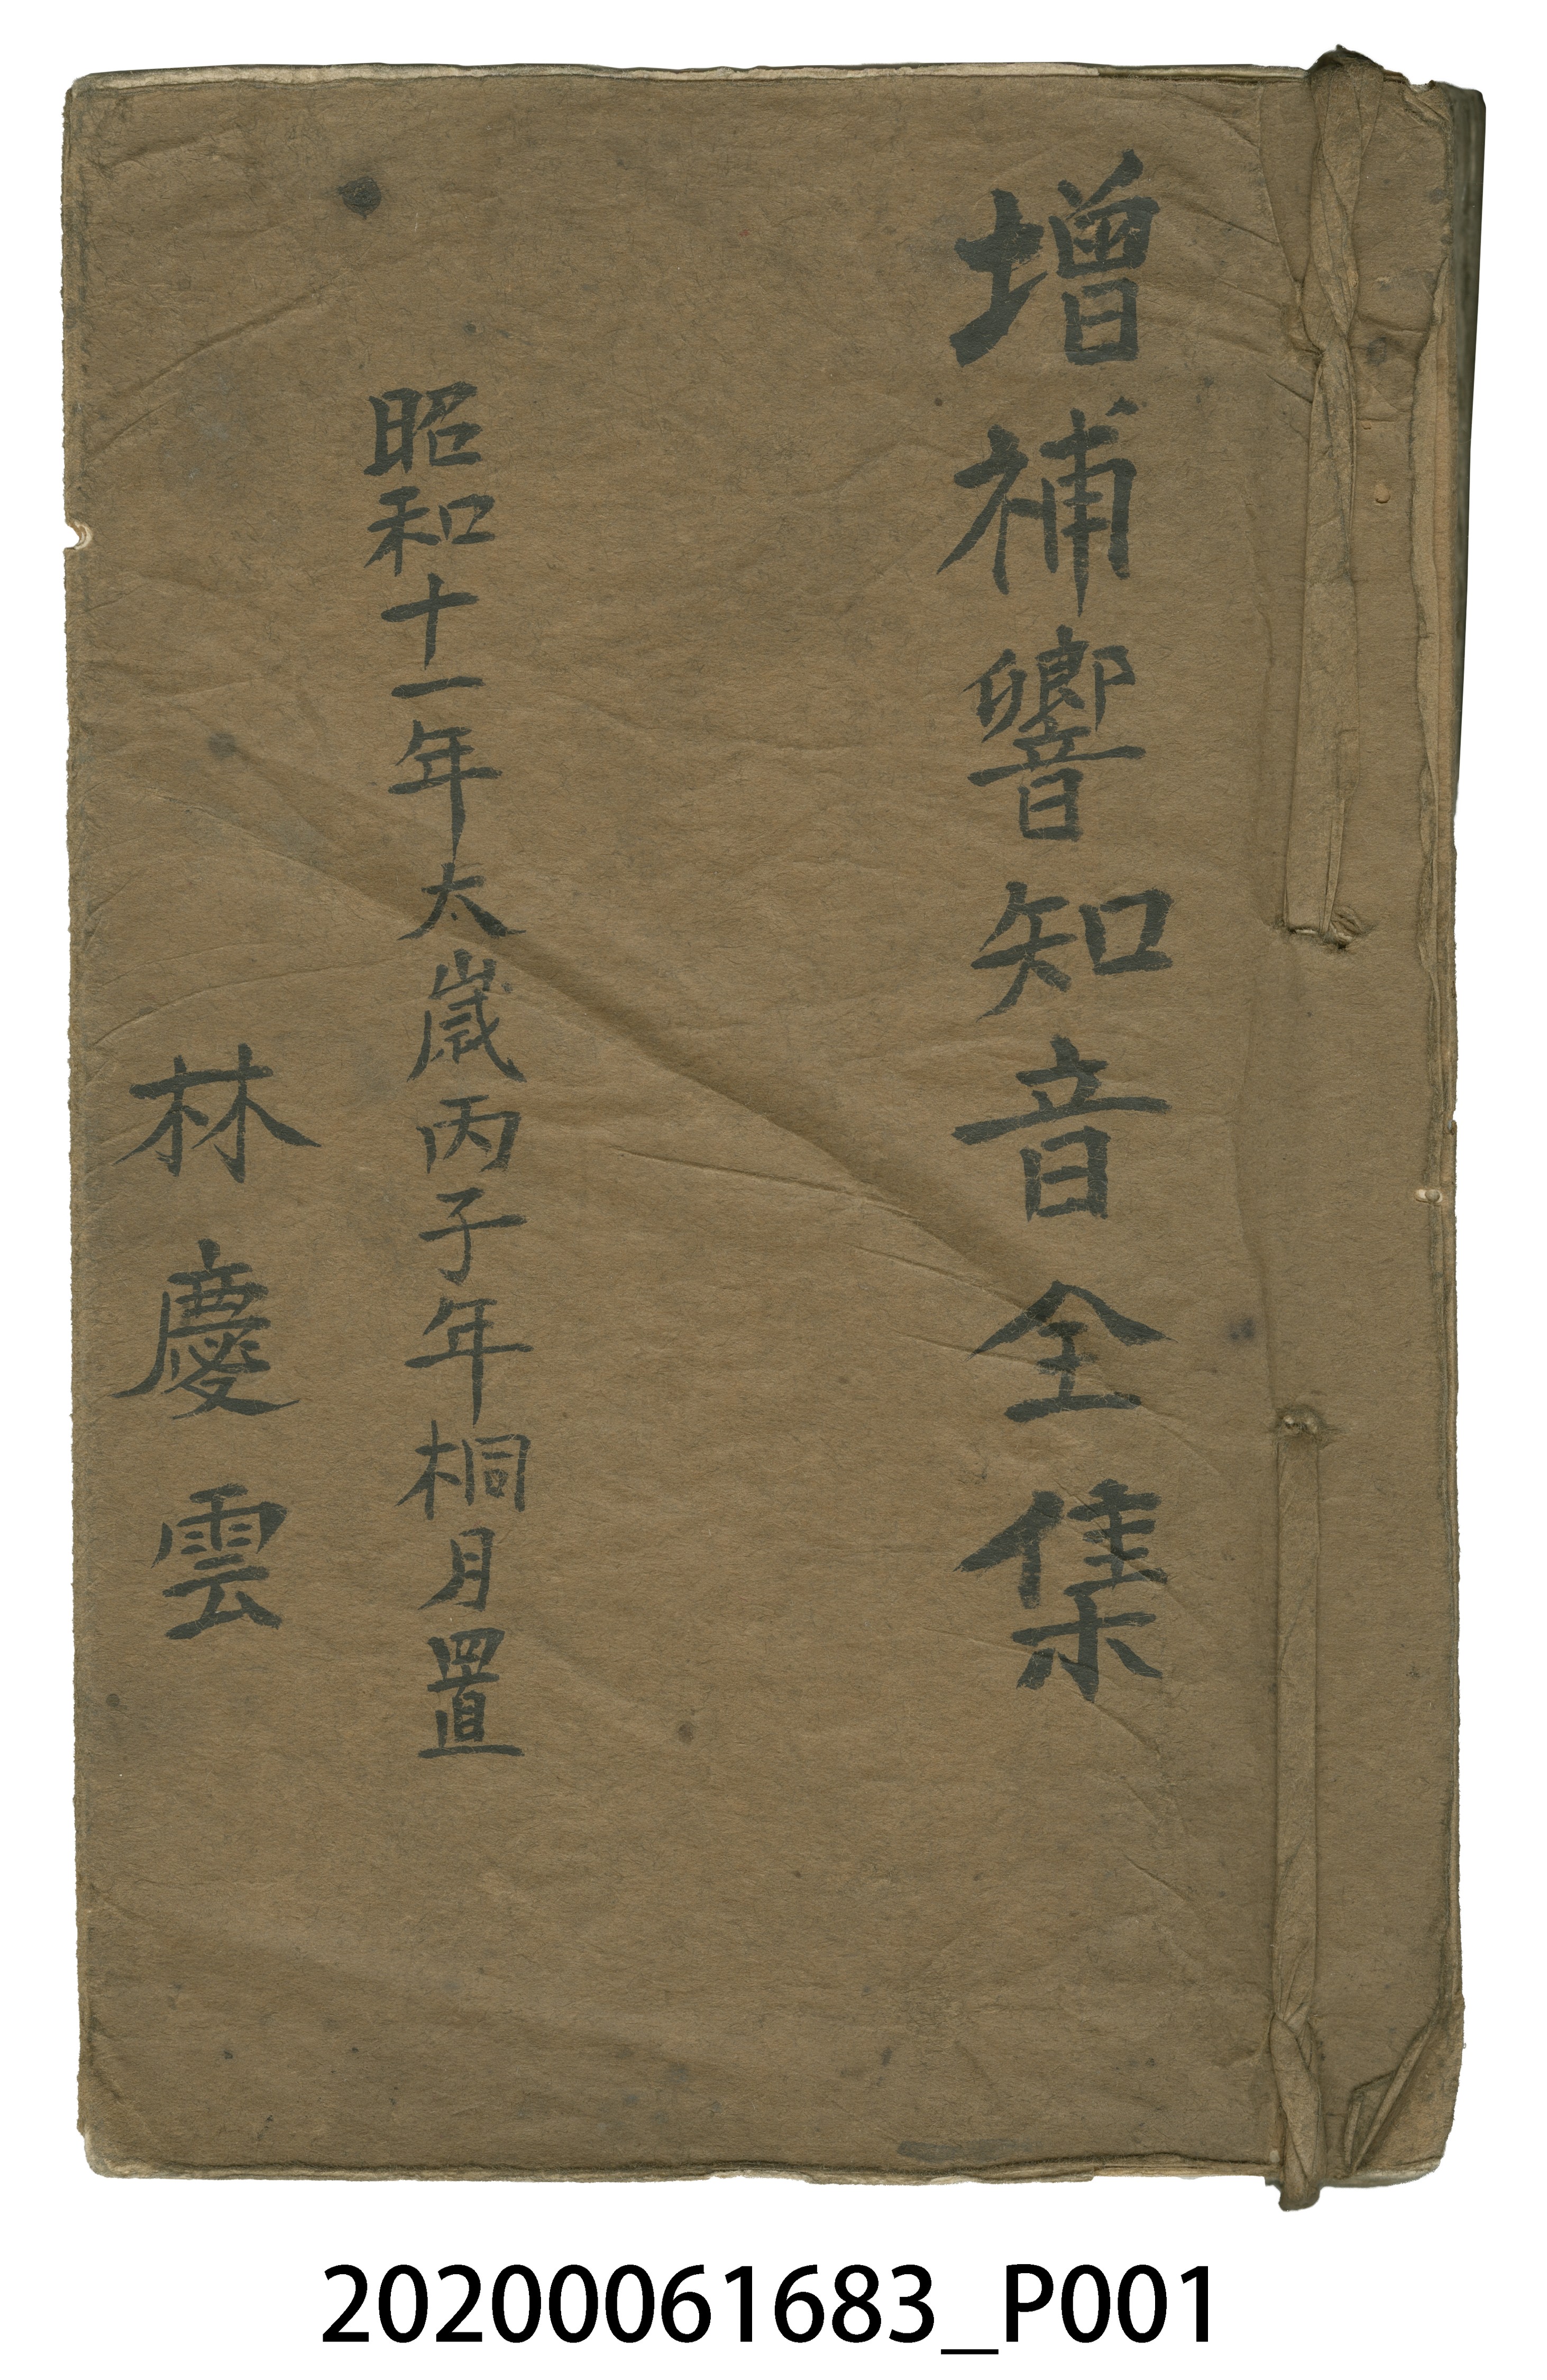 增補響知音全集
昭和十一年太歲丙子年桐月置
林慶雲
20200061683_P001